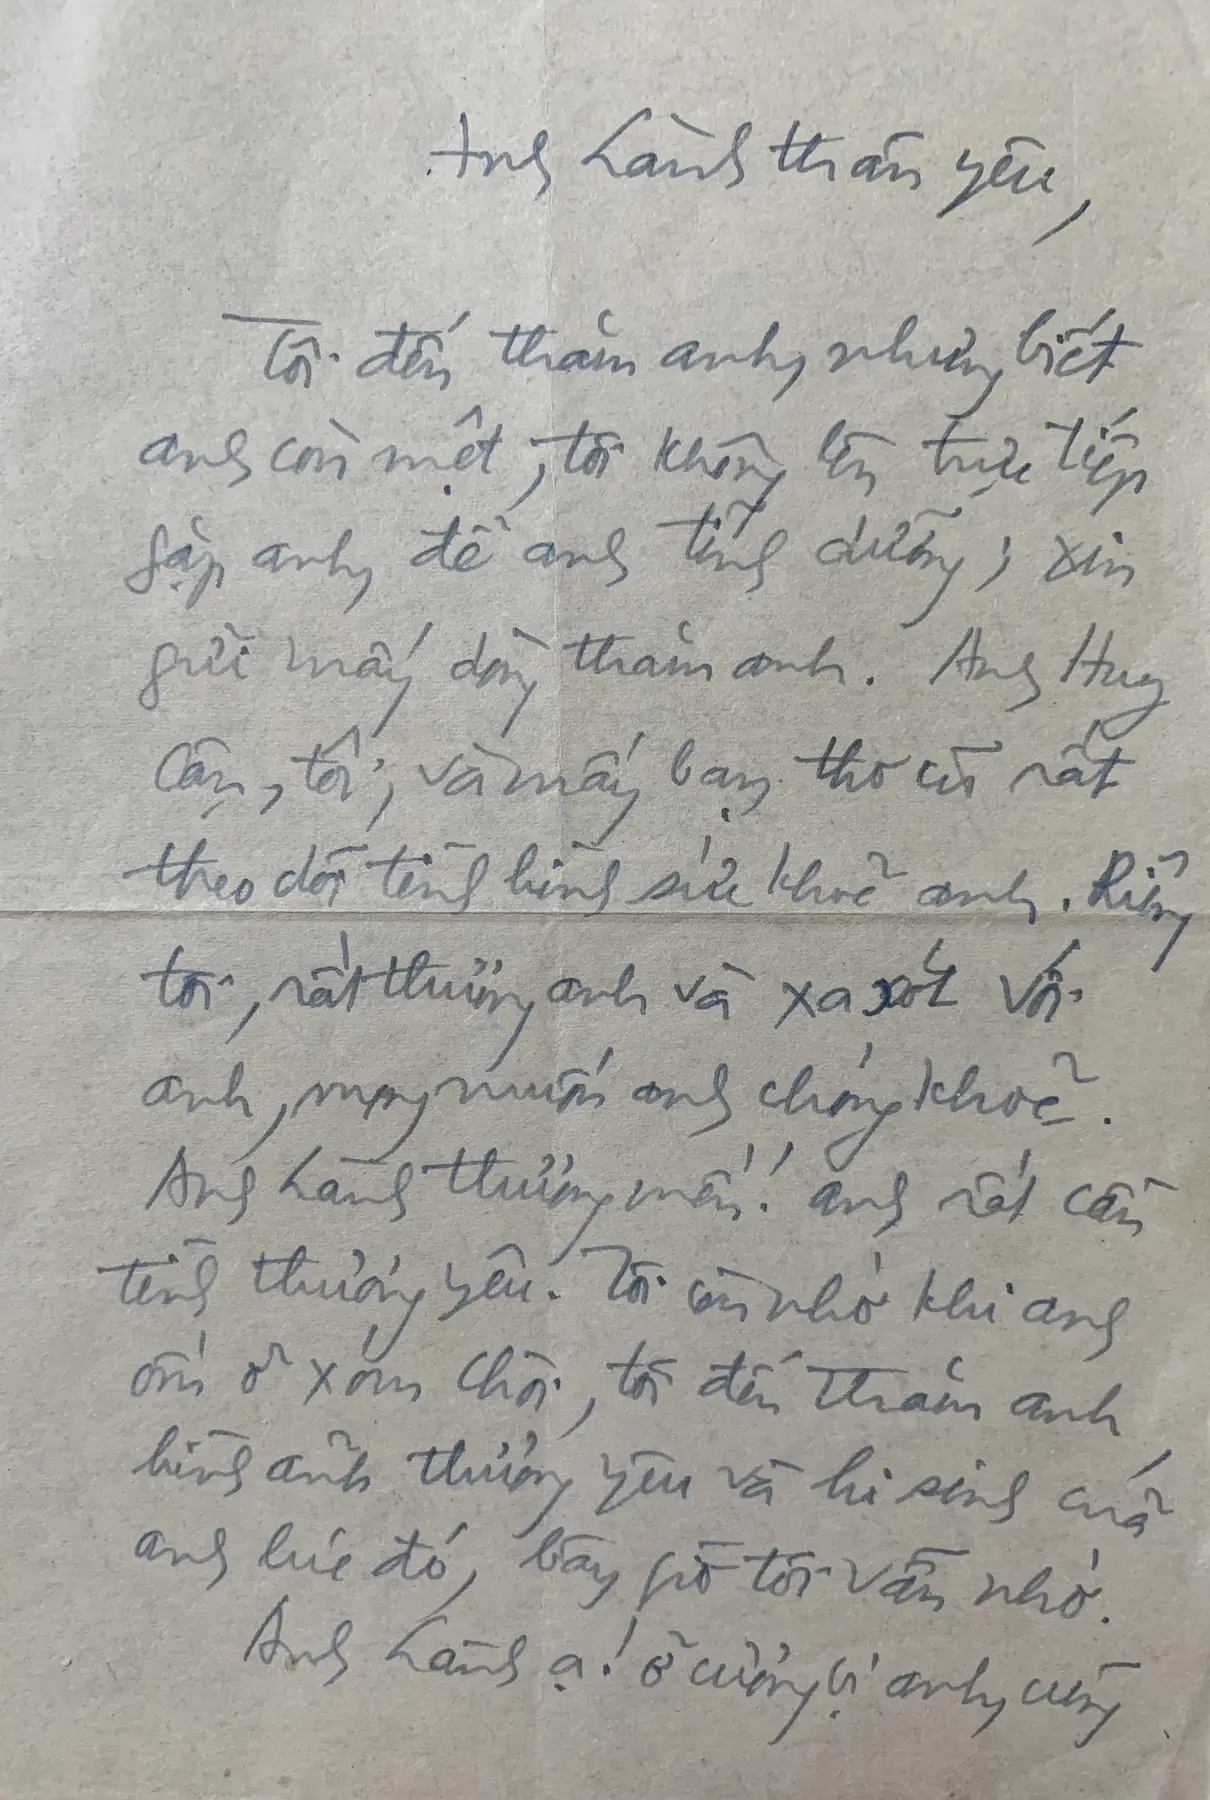 Anh Lành thân yêu,
Tôi đến thăm anh, nhưng biết
anh còn mệt, tôi không lên trực tiếp
gặp anh, để anh tĩnh dưỡng, xin
gửi mấy dòng thăm anh. Anh Huy
Cận, tôi, và mấy bạn thơ cũ rất
theo dõi tình hình sức khoẻ anh. Riêng
tôi, rất thương anh và xa xót với
anh, mong muốn anh chóng khoẻ.
Anh Lành thương mến! anh rất cần
tình thương yêu. Tôi còn nhớ khi anh
ốm ở xóm Chòi, tôi đến thăm anh,
hình ảnh thương yêu và hi sinh của
anh lúc đó, bây giờ tôi vẫn nhớ.
Anh Lành ạ! ở cương vị anh, cũng